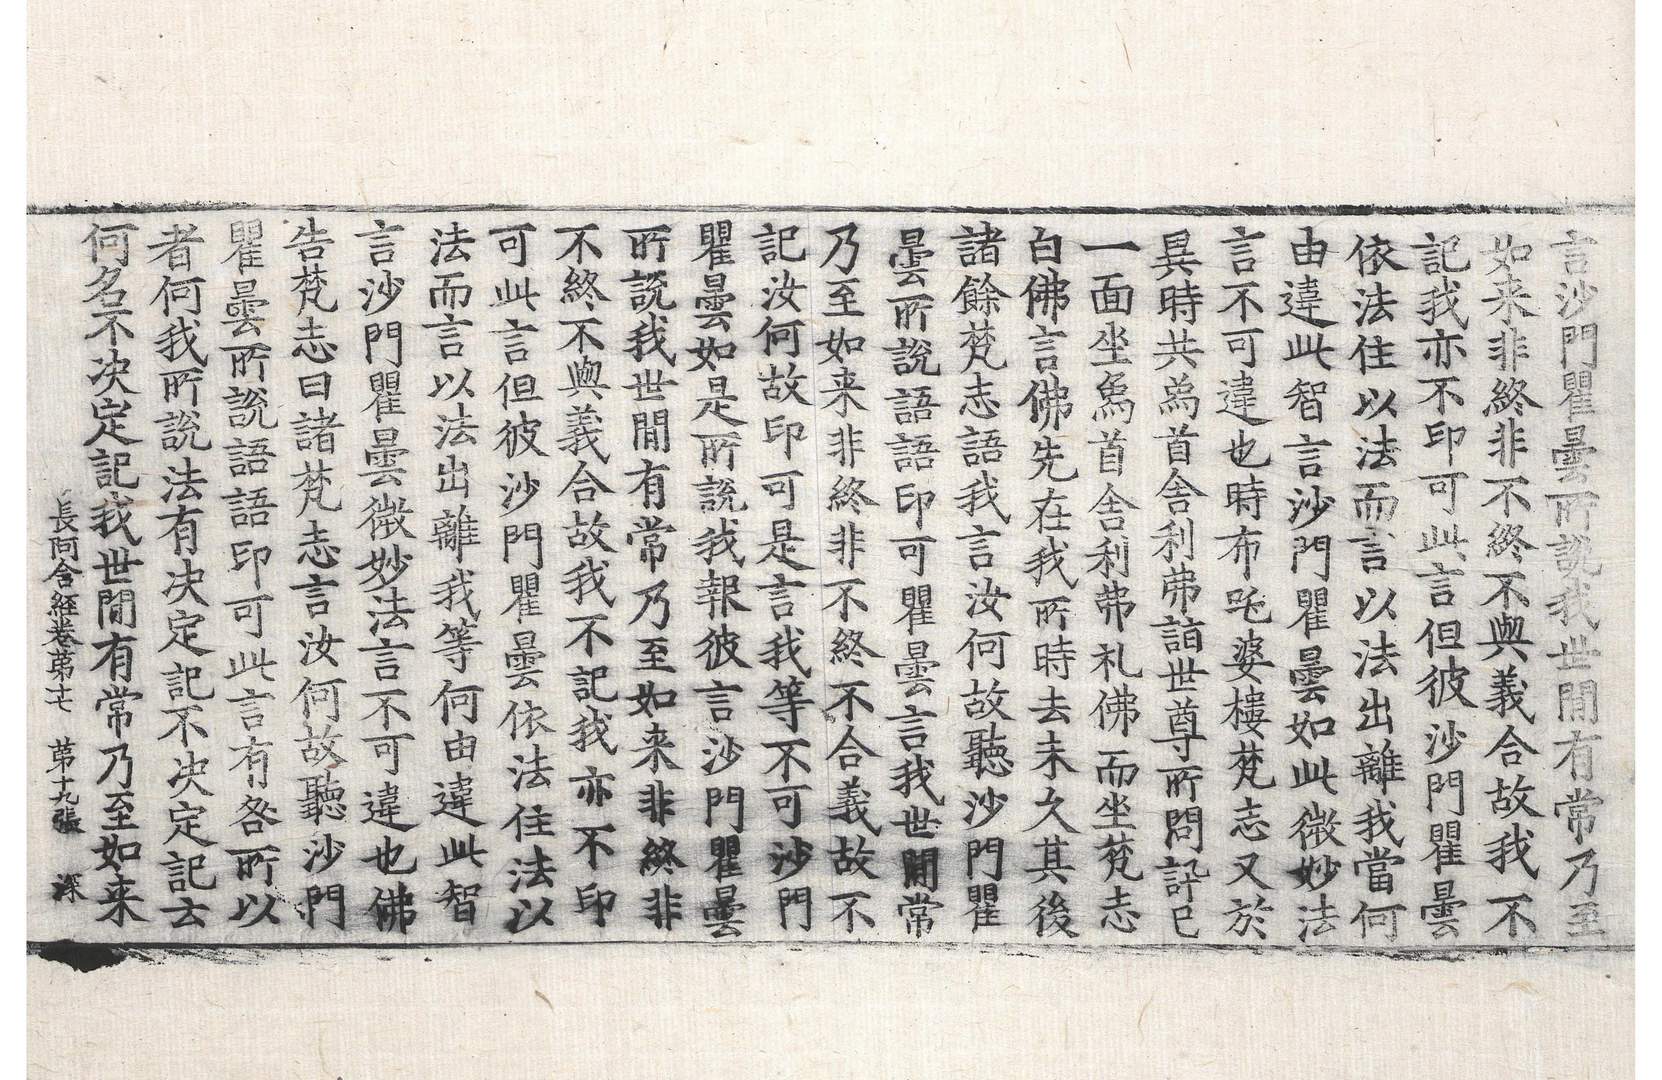 言沙門瞿曇所說我世間有常乃至
如来非終非不終不與義合故我不
記我亦不印可此言但彼沙門瞿曇
依法住以法而言以法出離我當何
由違此智言沙門瞿曇如此微妙法
言不可違也時布吒婆樓梵志又於
異時共為首舍利弗詣世尊所問訊已
一面坐為首舍利弗礼佛而坐梵志
白佛言佛先在我所時去未久其後
諸餘梵志語我言汝何故聽沙門瞿
曇所說語語印可瞿曇言我世間常
乃至如来非終非不終不合義故不
記汝何故印可是言我等不可沙門
瞿曇如是所說我報彼言沙門瞿曇
所說我世間有常乃至如来非終非
不終不與義合故我不記我亦不印
可此言但彼沙門瞿曇依法住法以
法而言以法出離我等何由違此智
言沙門瞿曇微妙法言不可違也佛
告梵志曰諸梵志言汝何故聽沙門
瞿曇所說語語印可此言有咎所以
者何我所說法有决定記不决定記云
何名不决定記我世間有常乃至如来
長阿含經卷第十七 第十九張 深